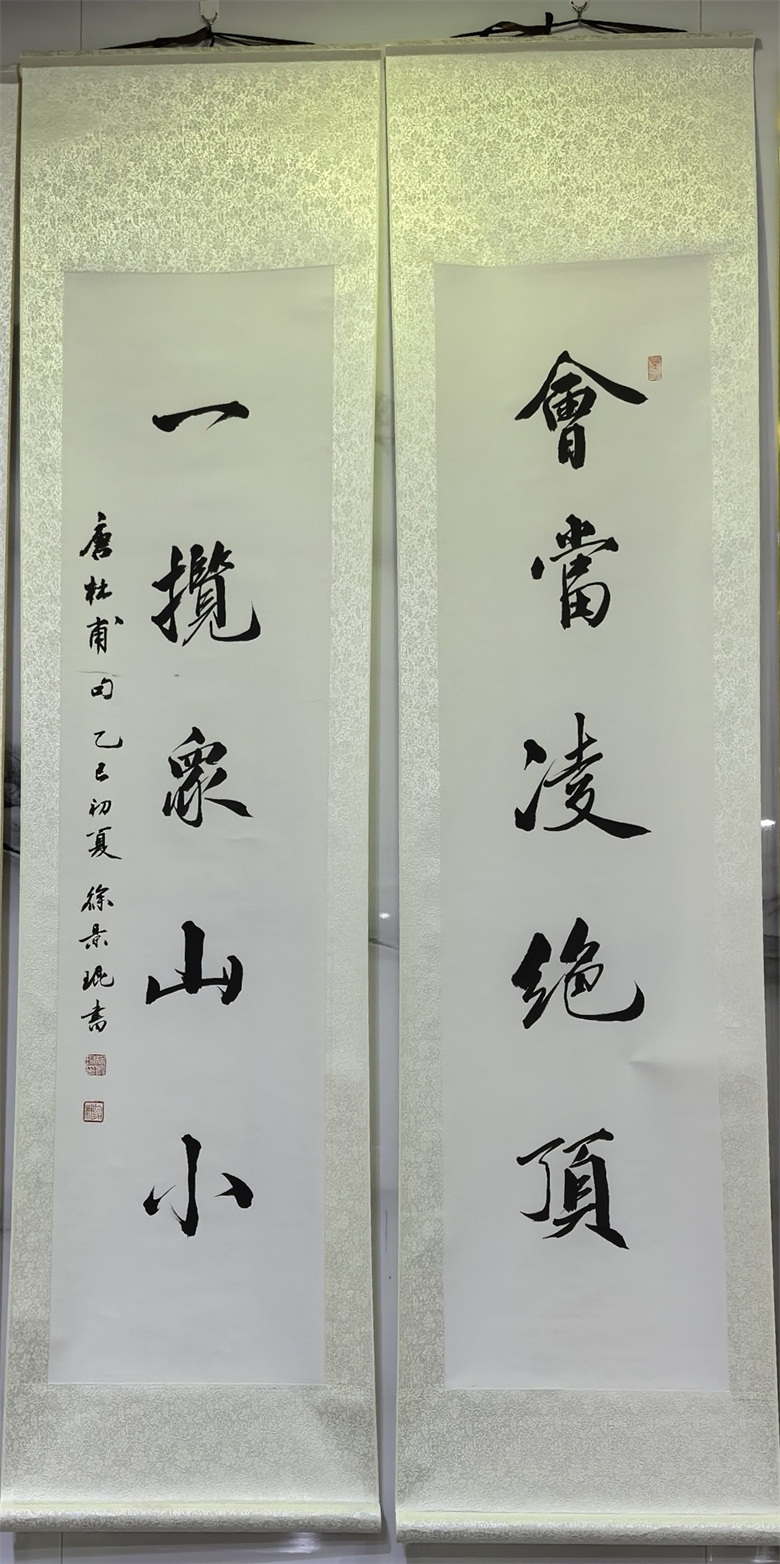 會當凌绝頂
一攬眾山小
唐杜甫句 乙巳初夏 徐景琨書